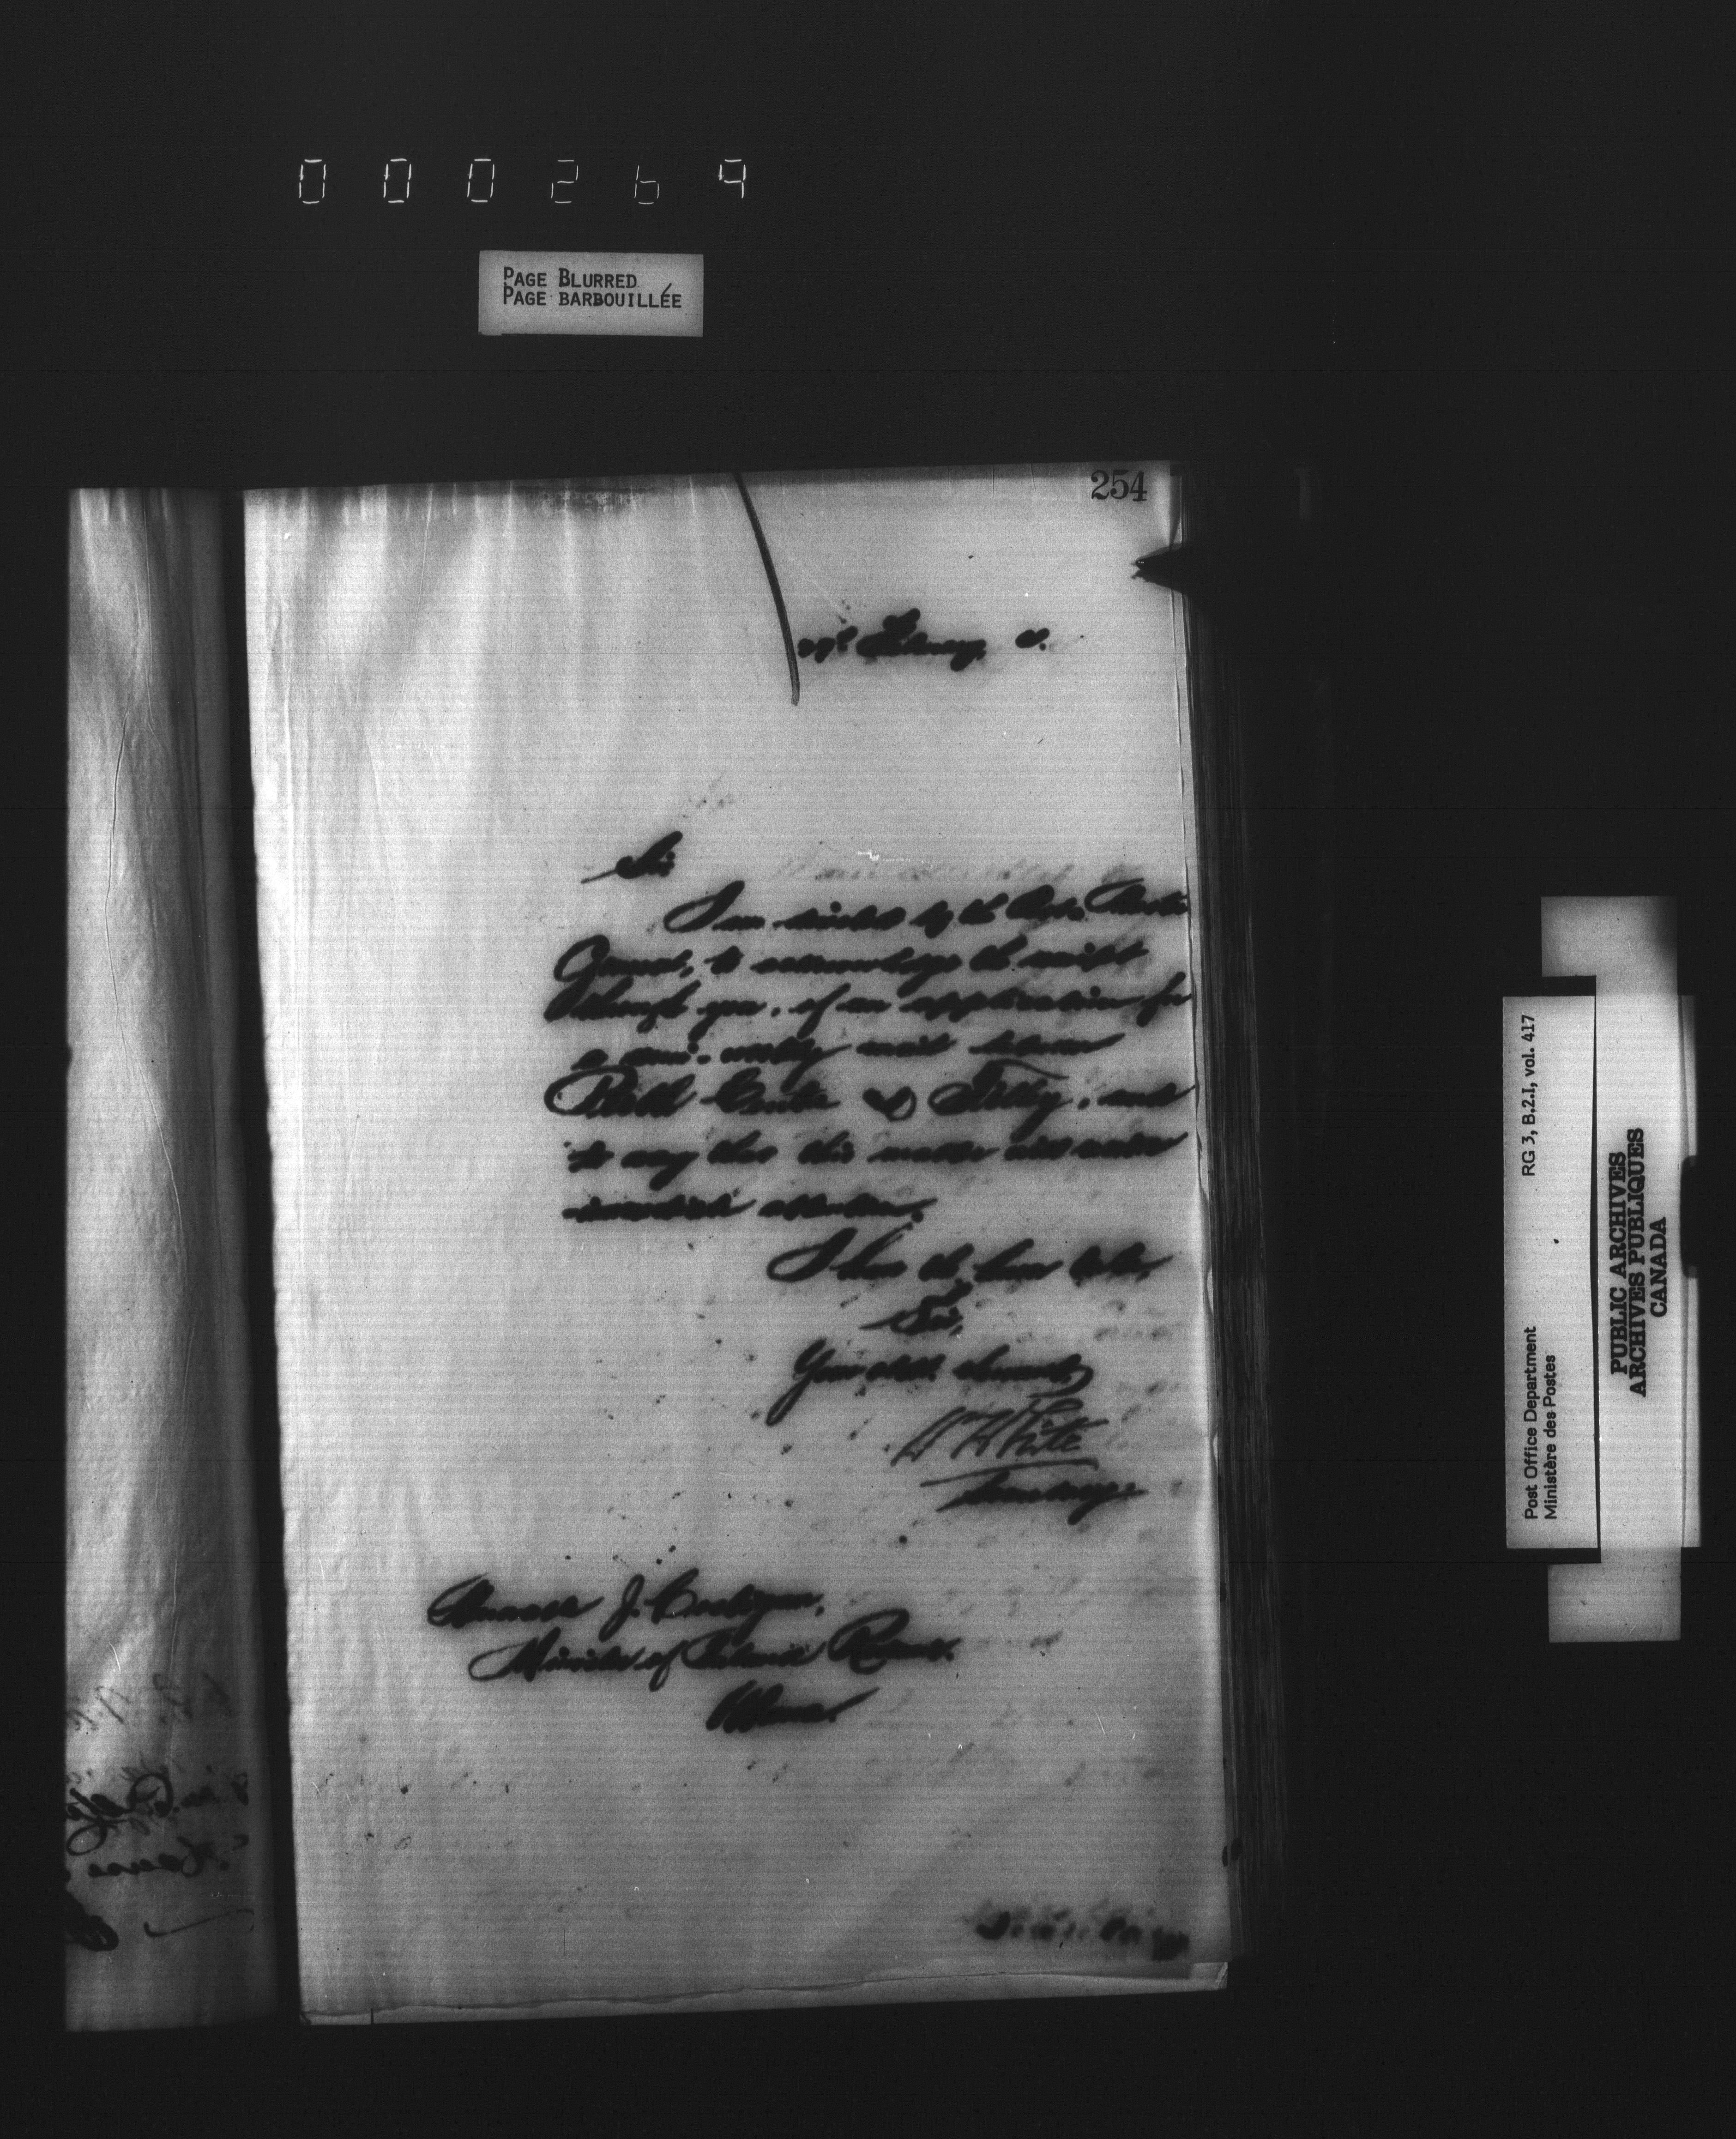 000269
PAGE BLURRED
PAGE BARBOUILLÉE
254
February
Sir,
I am directed by the
General, to acknowledge the receipt
through you, of an application for
a semi-weekly mail between
Centre & Tilley, and
to say that this matter will receive
immediate attention.
I have the honor to be,
Sir,
Your obdt. servant,
W White
Secretary.
J. Costigan,
Minister of Inland Revenue.
Post Office Department
Ministère des Postes
RG 3, B.2.1, vol. 417
PUBLIC ARCHIVES
ARCHIVES PUBLIQUES
CANADA